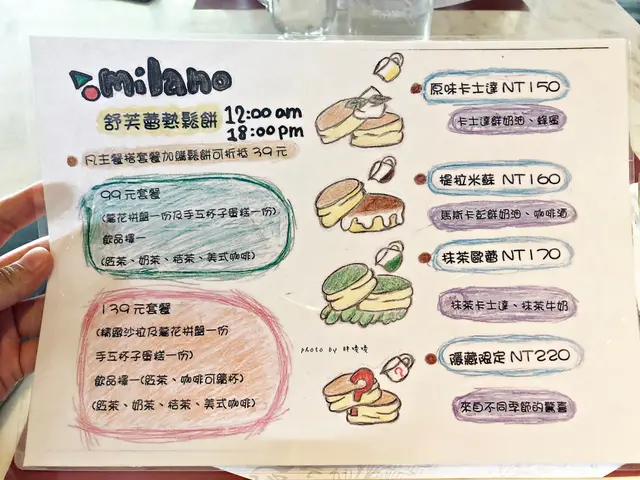 milano
舒芙蕾熱鬆餅
12:00 am
18:00 pm
凡主餐搭套餐加購鬆餅可折抵 39 元
99 元套餐
(薯花拼盤一份及手工杯子蛋糕一份)
飲品擇一
(紅茶、奶茶、桔茶、美式咖啡)
139 元套餐
(精緻沙拉及薯花拼盤一份
手工杯子蛋糕一份)
飲品擇一(紅茶、咖啡可續杯)
(紅茶、奶茶、桔茶、美式咖啡)
原味卡士達 NT 150
卡士達鮮奶油、蜂蜜
提拉米蘇 NT 160
馬斯卡彭鮮奶油、咖啡酒
抹茶歐蕾 NT 170
抹茶卡士達、抹茶牛奶
隱藏限定 NT 220
來自不同季節的驚喜
?
?
photo by 胖嘍嘍